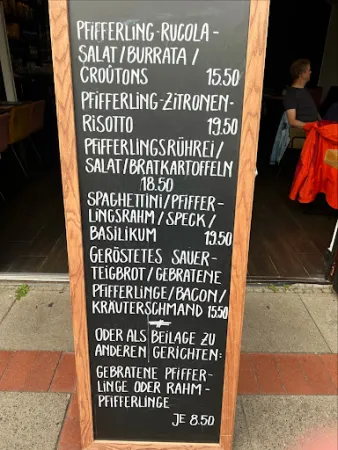 PFIFFERLING-RUCOLA-
SALAT/BURRATA/
CROÛTONS 15.50
PFIFFERLING-ZITRONEN-
RISOTTO 19.50
PFIFFERLINGSRÜHREI/
SALAT/BRATKARTOFFELN
18.50
SPAGHETTINI/PFIFFER-
LINGSRAHM/SPECK/
BASILIKUM 19.50
GERÖSTETES SAUER-
TEIGBROT/GEBRATENE
PFIFFERLINGE/BACON/
KRÄUTERSCHMAND 15.50
ODER ALS BEILAGE ZU
ANDEREN GERICHTEN:
GEBRATENE PFIFFER-
LINGE ODER RAHM-
PFIFFERLINGE
JE 8.50